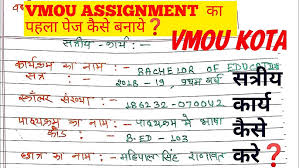 VMOU ASSIGNMENT का
पहला पेज कैसे बनाये ?
VMOU KOTA
सत्रीय कार्य
कार्यक्रम का नाम :- BACHELOR OF EDUCATION
सत्र :- 2018-19, प्रथम वर्ष
स्कॉलर संख्या :- 186232-070042
पाठ्यक्रम का नाम :- पाठ्यक्रम में भाषा
कोड :- B.ED-103
छात्र का नाम :- महिपाल सिंह
सत्रीय
कार्य
कैसे
करे ?